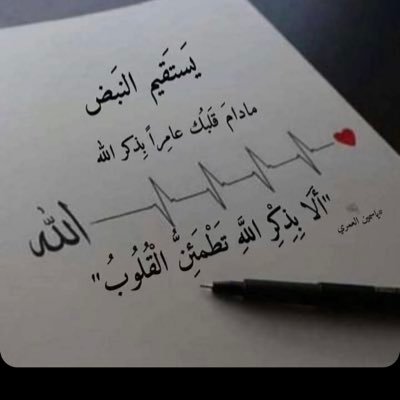 يَستَقيم النبَض
مادامَ قَلبُك عامِراً بِذكر الله
الله
"أَلَا بِذِكْرِ اللَّهِ تَطْمَئِنُّ الْقُلُوبُ"
العمري